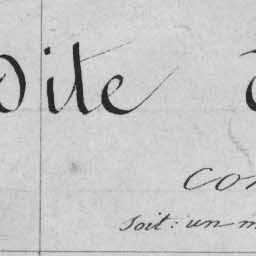 Dite
con
Soit: un m